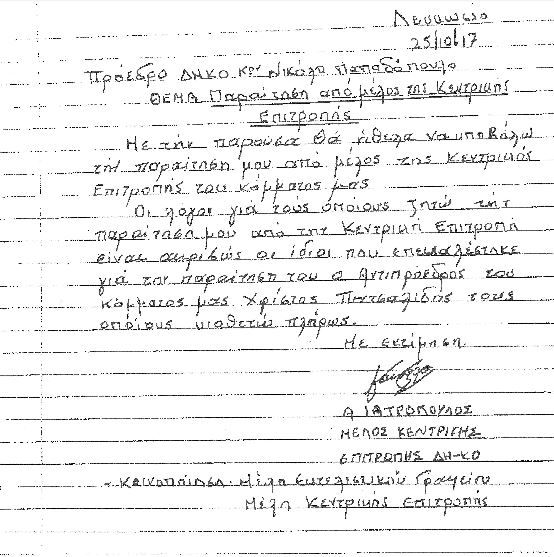 Λευκωσία
25/10/17
Πρόεδρο ΔΗΚΟ Κον Νικόλα Παπαδόπουλο
ΘΕΜΑ Παραίτηση από μέλος της Κεντρικής
Επιτροπής
Με την παρούσα θά ήθελα να υποβάλω
την παραίτηση μου από μέλος της Κεντρικής
Επιτροπής του κόμματος μας
Οι λόγοι γιά τους οποίους ζητώ τήν
παραίτηση μου από την Κεντρική Επιτροπή
είναι ακριβώς οι ίδιοι που επεκαλέστηκε
γιά την παραίτηση του ο Αντιπρόεδρος του
κόμματος μας Χρίστος Πιτσιλλίδης τους
οποίους υιοθετώ πλήρως.
Με εκτίμηση
Α ΙΑΤΡΟΠΟΥΛΟΣ
ΜΕΛΟΣ ΚΕΝΤΡΙΚΗΣ
ΕΠΙΤΡΟΠΗΣ ΔΗ-ΚΟ
- Κοινοποίηση Μέλη Εκτελεστικού Γραφείου
Μέλη Κεντρικής Επιτροπής